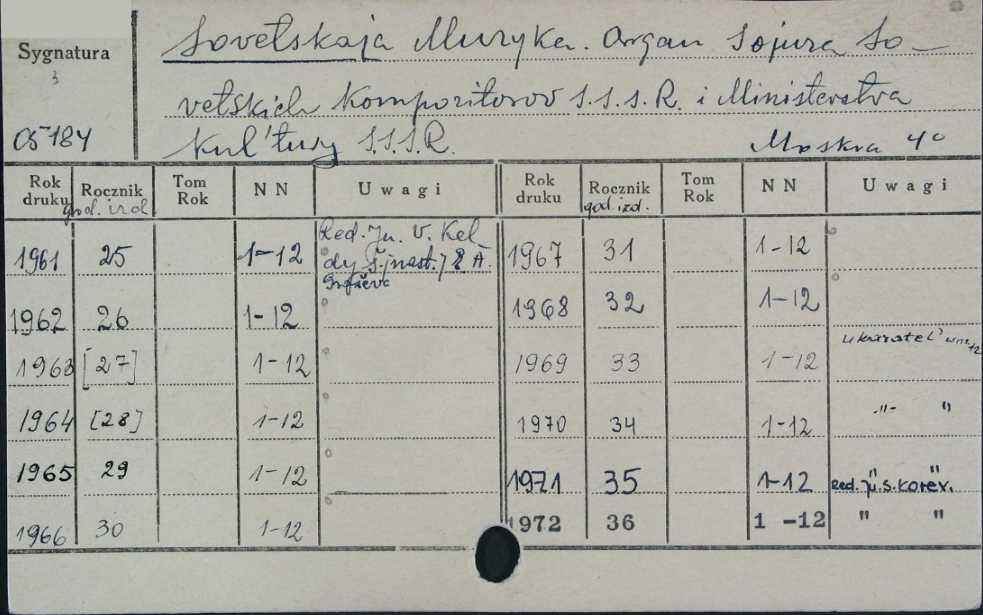 Sygnatura
Sovetskaja Muzyka. Organ Sojuza So-
vetskich Kompozitorov S.S.S.R. i Ministerstva
Kul'tury S.S.S.R. Moskva 4°
Rok druku Rocznik Tom Rok N N Uwagi Rok druku Rocznik Tom Rok N N Uwagi
god. izd. god. izd.
1961 25 1-12 Red. Ju. V. Kel- 1967 31 1-12
dyš, nast. A.
1962 26 1-12 1968 32 1-12
1963 [27] 1-12 1969 33 1-12 ukazatel' w nr 12
1964 [28] 1-12 1970 34 1-12 -"- "
1965 29 1-12 1971 35 1-12 " " Red. Ju. S. Korev.
1966 30 1-12 1972 36 1 -12 " "